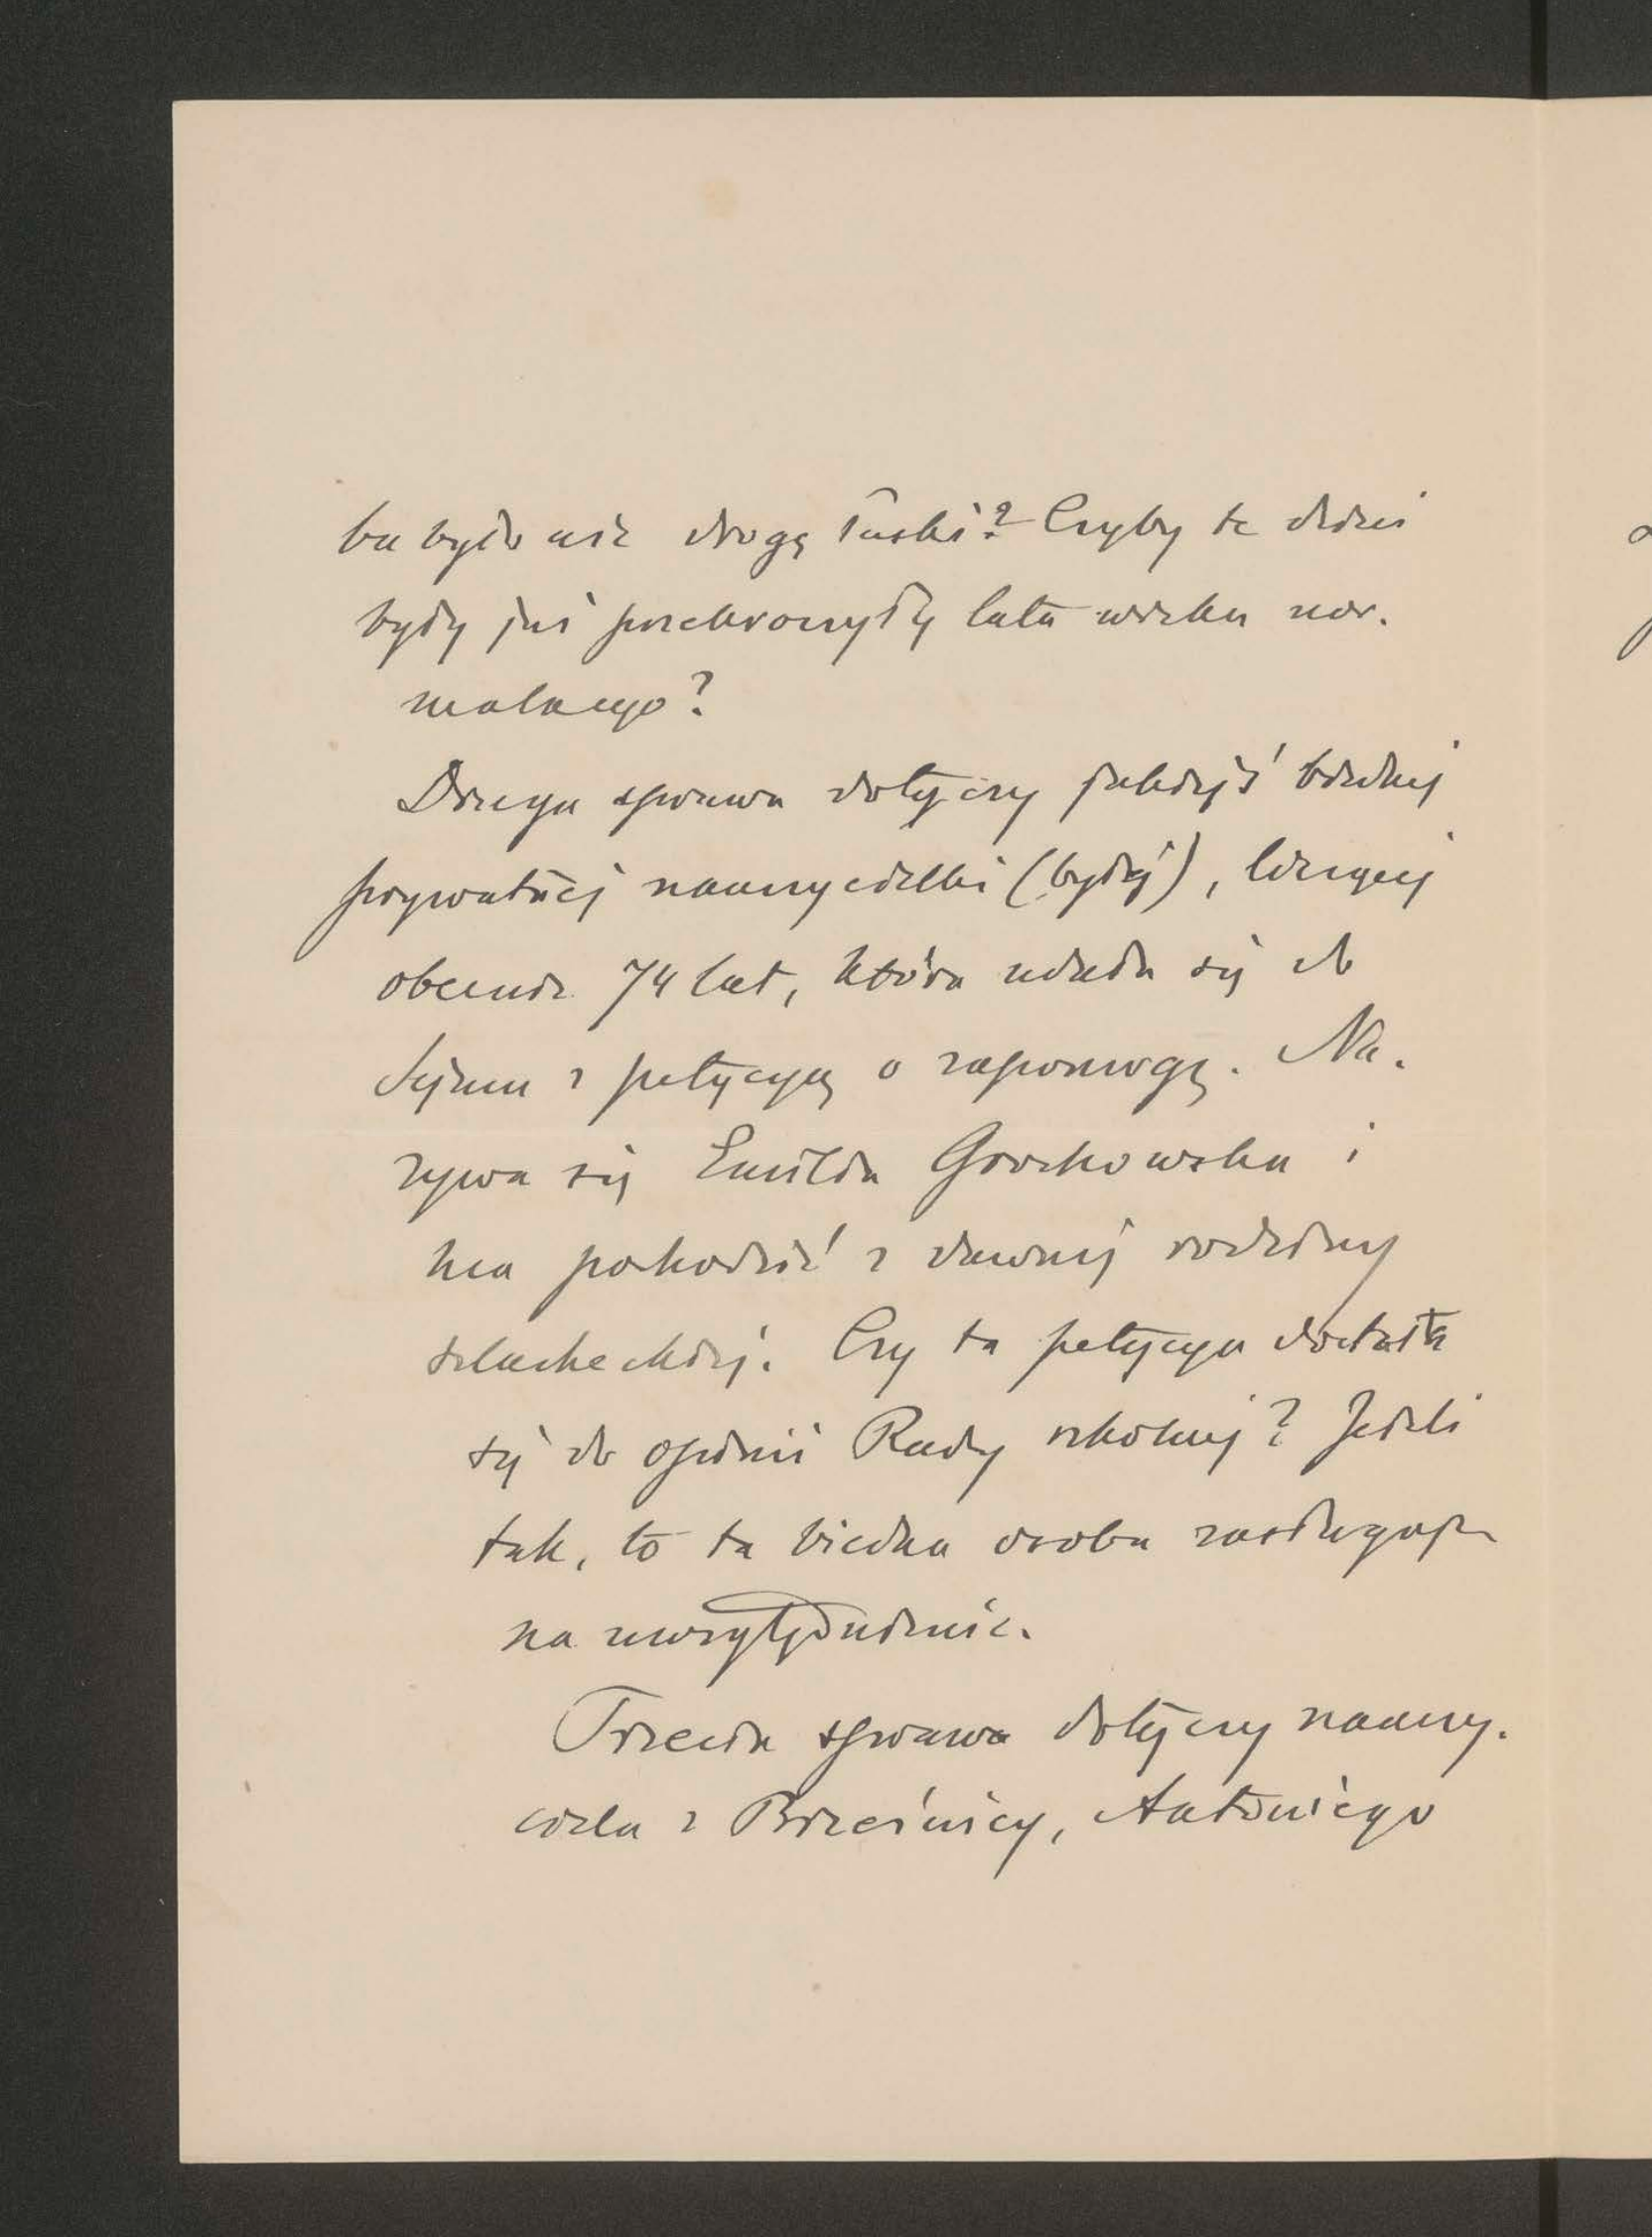 ba było iść drogą łaski? Czyby te dzieci
były już przekroczyły lata wieku nor-
malnego?
Druga sprawa dotyczy jakiejś biednej
prywatnej nauczycielki (byłej), liczącej
obecnie 74 lat, która udała się do
Sejmu z petycyą o zapomogę. Na-
zywa się Emilia Grochowska i
ma pochodzić z dawnej rodziny
szlacheckiej. Czy ta petycya dostała
się do opinii Rady szkolnej? Jeżeli
tak, to ta biedna osoba zasługuje
na uwzględnienie.
Trzecia sprawa dotyczy nauczy-
ciela z Brzeźnicy, Antoniego